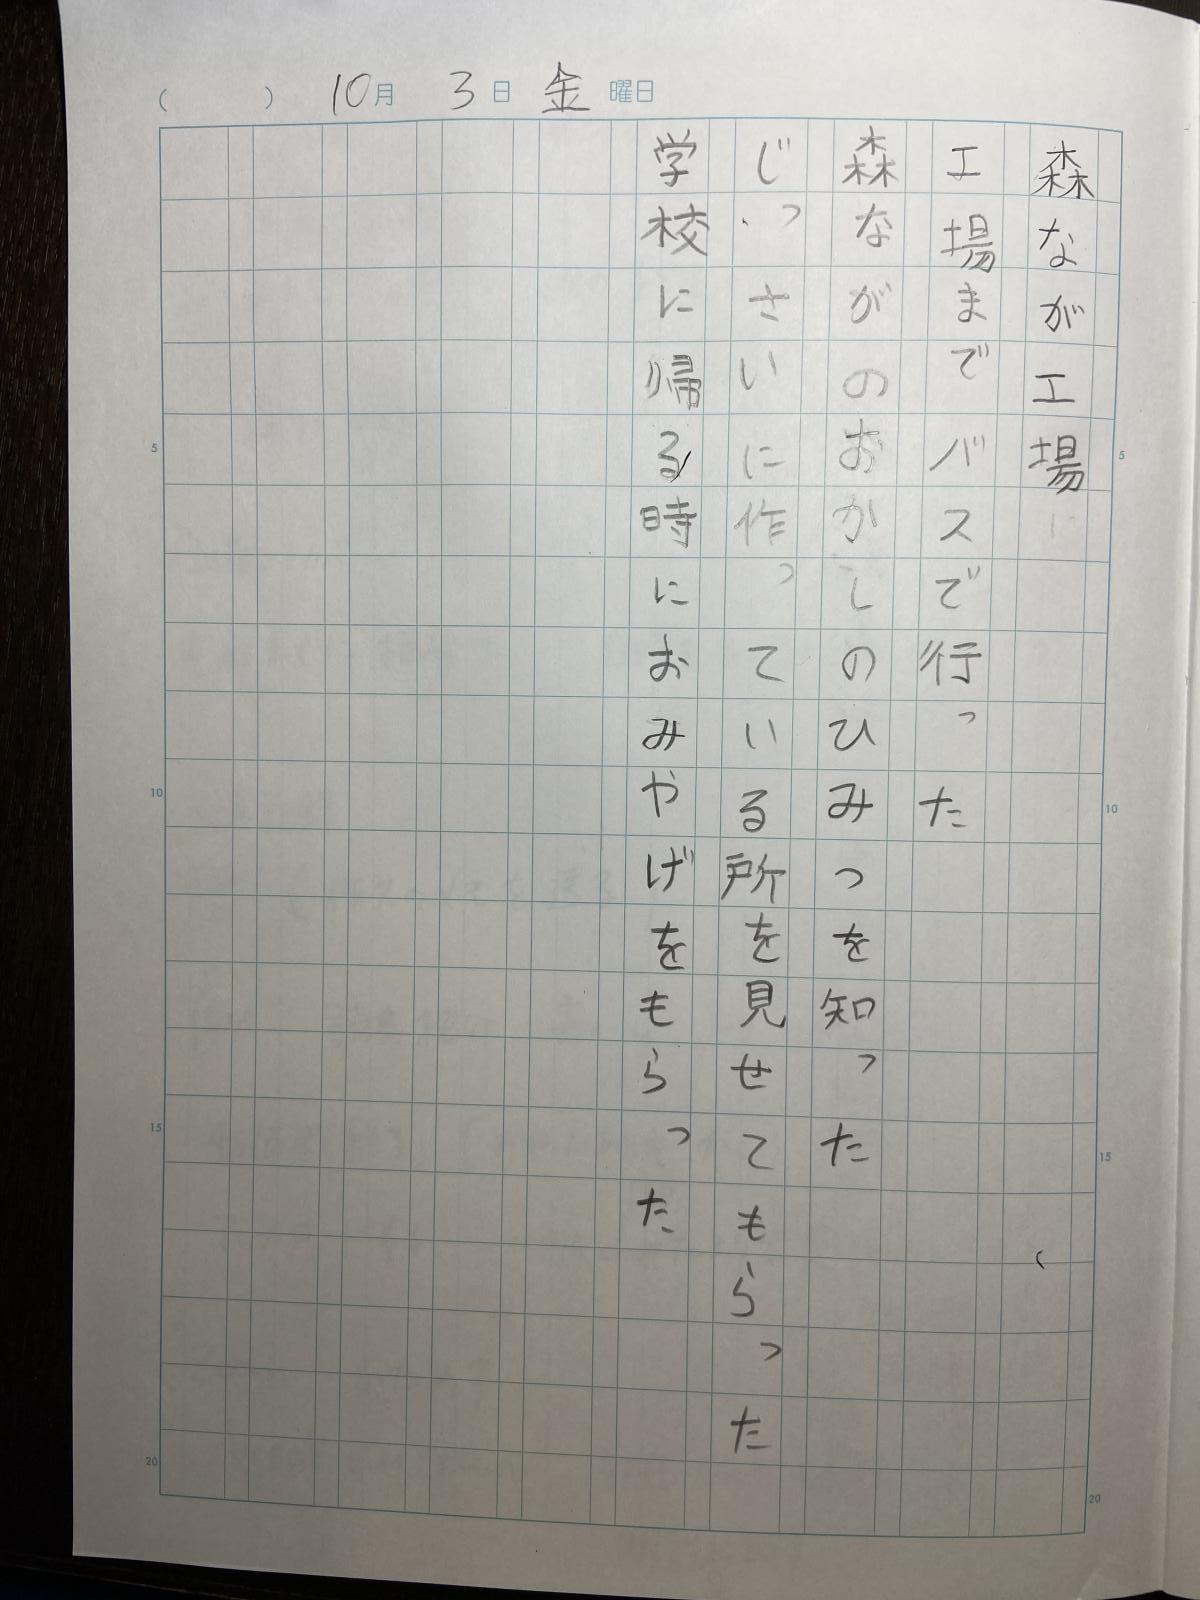 ( ) 10月 3日 金曜日
森なが工場
工場までバスで行った
森ながのおかしのひみつを知った
じっさいに作っている所を見せてもらった
学校に帰る時におみやげをもらった
5
10
15
20
5
10
15
20